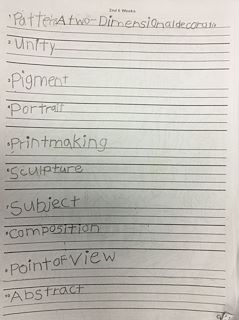 2nd 6 Weeks
1. Pattern A two-Dimensional decorativ
2. Unity
3. Pigment
4. Portrait
5. Printmaking
6. Sculpture
7. Subject
8. Composition
9. Point of View
10. Abstract